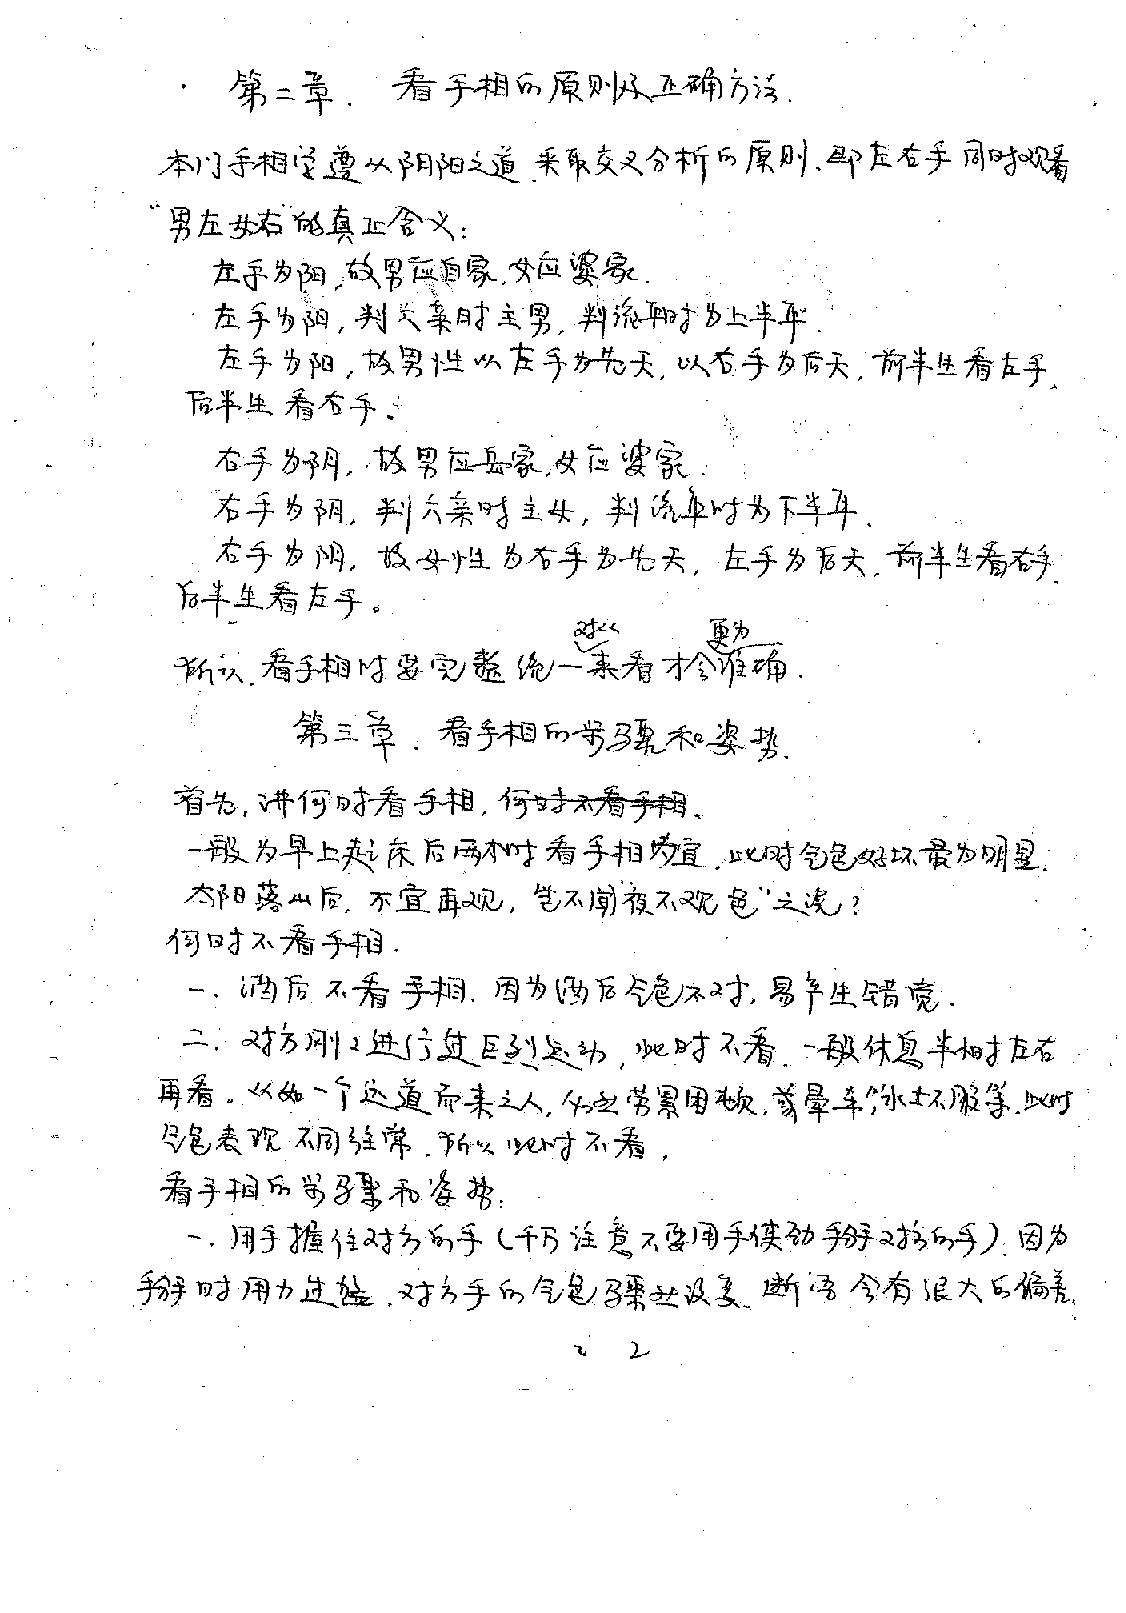 第二章. 看手相的原则及正确方法.
本门手相学遵从阴阳之道,采取交叉分析的原则,即左右手同时观看
“男左女右”的真正含义:
左手为阳,故男应自家,女应婆家.
左手为阳,判六亲时主男,判流年时为上半年.
左手为阳,故男性以左手为先天,以右手为后天,前半生看左手,
后半生看右手.
右手为阴,故男应岳家,女应婆家.
右手为阴,判六亲时主女,判流年时为下半年.
右手为阴,故女性为右手为先天,左手为后天,前半生看右手,
后半生看左手。
对比 更为
所以,看手相时要完整统一来看才会准确.
第三章. 看手相的步骤和姿势.
首先,讲何时看手相,何时不看手相.
一般为早上起床后两小时看手相为宜,此时气色好坏最为明显.
太阳落山后,不宜再观,岂不闻“夜不观色”之说?
何时不看手相.
一. 酒后不看手相,因为酒后气色不对,易产生错觉.
二. 对方刚刚进行过巨烈运动,此时不看,一般休息半小时左右
再看。从如一个远道而来之人,必然劳累困顿,或晕车,水土不服等,此时
气色表现不同往常,所以此时不看.
看手相的步骤和姿势:
一. 用手握住对方的手(千万注意不要用手使劲掰对方的手),因为
掰时用力过猛,对方手的气色骤然改变,断语会有很大的偏差.
2 2